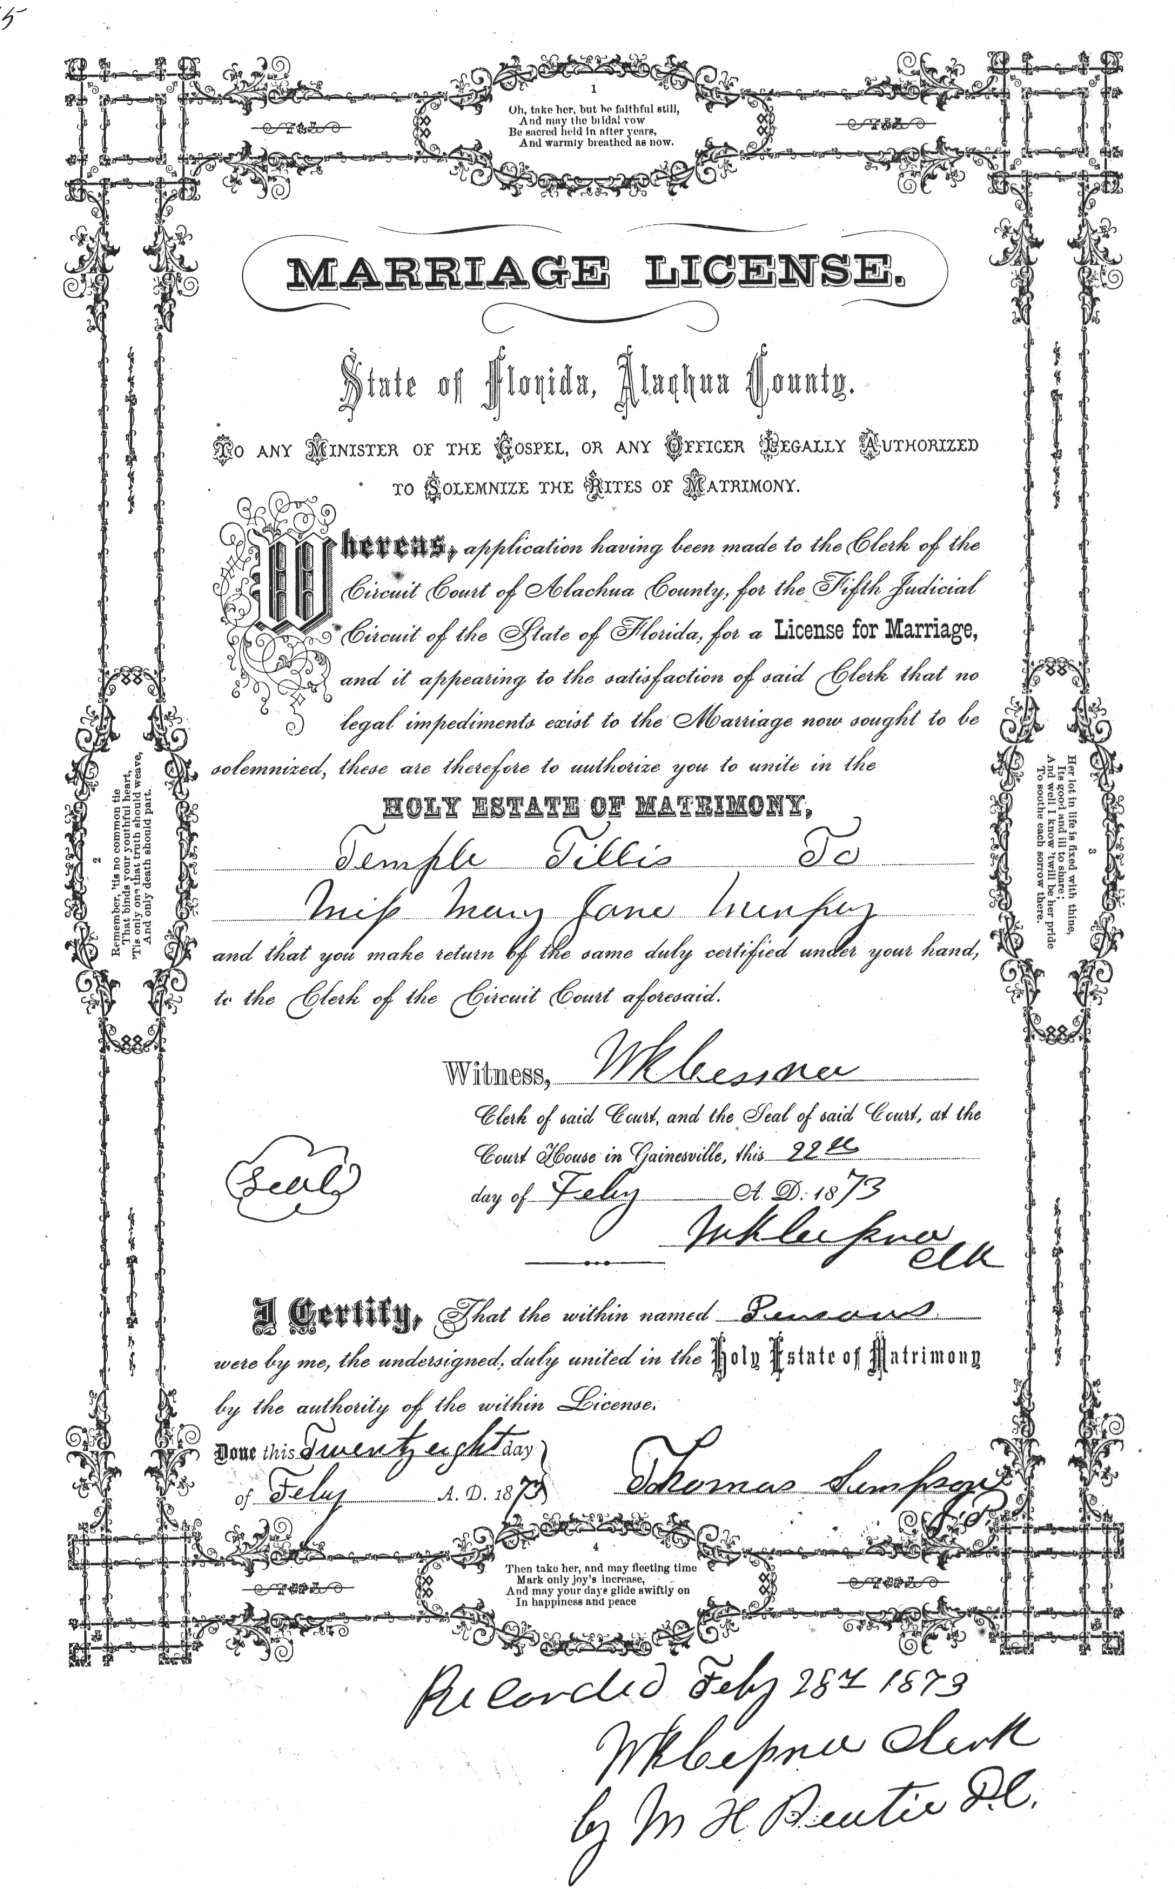 5
1
Oh, take her, but be faithful still,
And may the bridal vow
Be sacred held in after years,
And warmly breathed as now.
MARRIAGE LICENSE.
State of Florida, Alachua County.
TO ANY MINISTER OF THE GOSPEL, OR ANY OFFICER LEGALLY AUTHORIZED
TO SOLEMNIZE THE RITES OF MATRIMONY.
Whereas, application having been made to the Clerk of the
Circuit Court of Alachua County, for the Fifth Judicial
Circuit of the State of Florida, for a License for Marriage,
and it appearing to the satisfaction of said Clerk that no
legal impediments exist to the Marriage now sought to be
solemnized, these are therefore to authorize you to unite in the
HOLY ESTATE OF MATRIMONY,
Temple Tillis To
Miss Mary Jane
and that you make return of the same duly certified under your hand,
to the Clerk of the Circuit Court aforesaid.
Witness, WK Cessna
Clerk of said Court, and the Seal of said Court, at the
Court House in Gainesville, this 22
day of Feby A. D. 1873
WK Cessna
Clk
Seal
I Certify, That the within named Persons
were by me, the undersigned, duly united in the Holy Estate of Matrimony
by the authority of the within License.
Done this Twenty eight day
of Feby A. D. 1873
Thomas Simpson
J.P.
2
Remember, 'tis no common tie
That binds your youthful heart,
'Tis only one that truth should weave,
And only death should part.
3
Her lot in life is fixed with thine,
Its good and ill to share;
And well I know 'twill be her pride
To soothe each sorrow there.
4
Then take her, and may fleeting time
Mark only joy's increase,
And may your days glide swiftly on
In happiness and peace
Recorded Feby 28 1873
WK Cessna Clerk
by M H D.C.